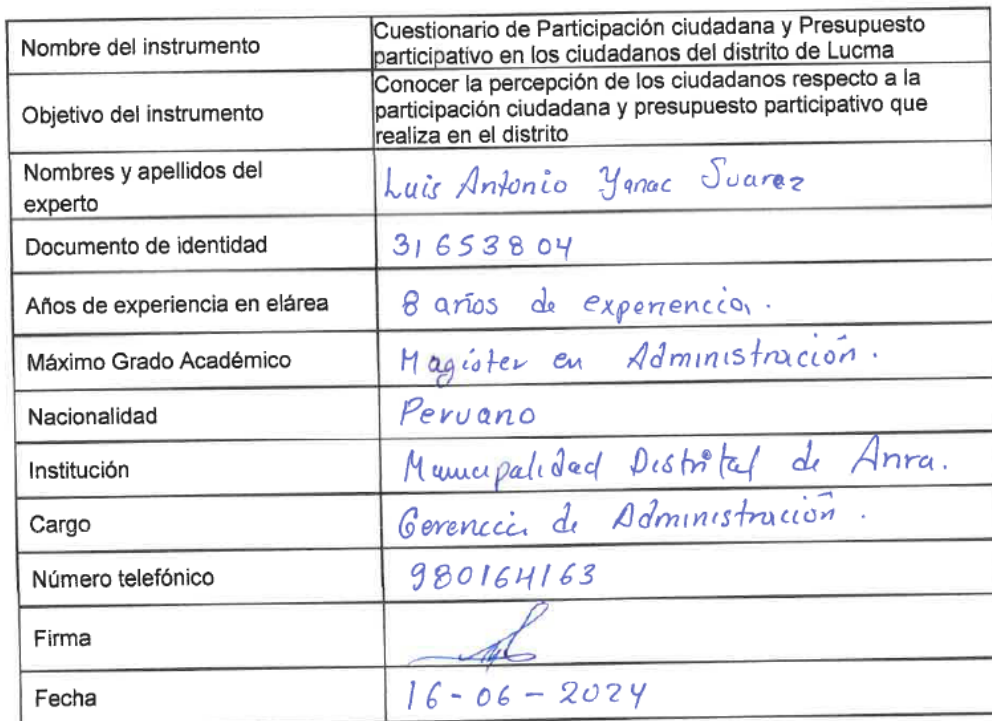 Nombre del instrumento
Cuestionario de Participación ciudadana y Presupuesto
participativo en los ciudadanos del distrito de Lucma
Objetivo del instrumento
Conocer la percepción de los ciudadanos respecto a la
participación ciudadana y presupuesto participativo que
realiza en el distrito
Nombres y apellidos del
experto
Luis Antonio Yanac Suarez
Documento de identidad
31653804
Años de experiencia en elárea
8 años de experiencia.
Máximo Grado Académico
Magister en Administración.
Nacionalidad
Peruano
Institución
Municipalidad Distrital de Anra.
Cargo
Gerencia de Administración.
Número telefónico
980164163
Firma
Fecha
16-06-2024